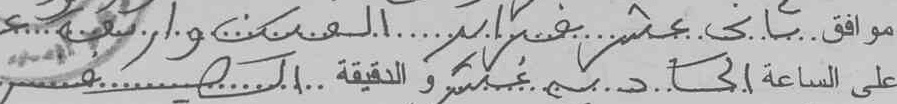 موافق ثاني عشر فبراير ألفين وأربعة
على الساعة الحادية عشر و الدقيقة الصفر